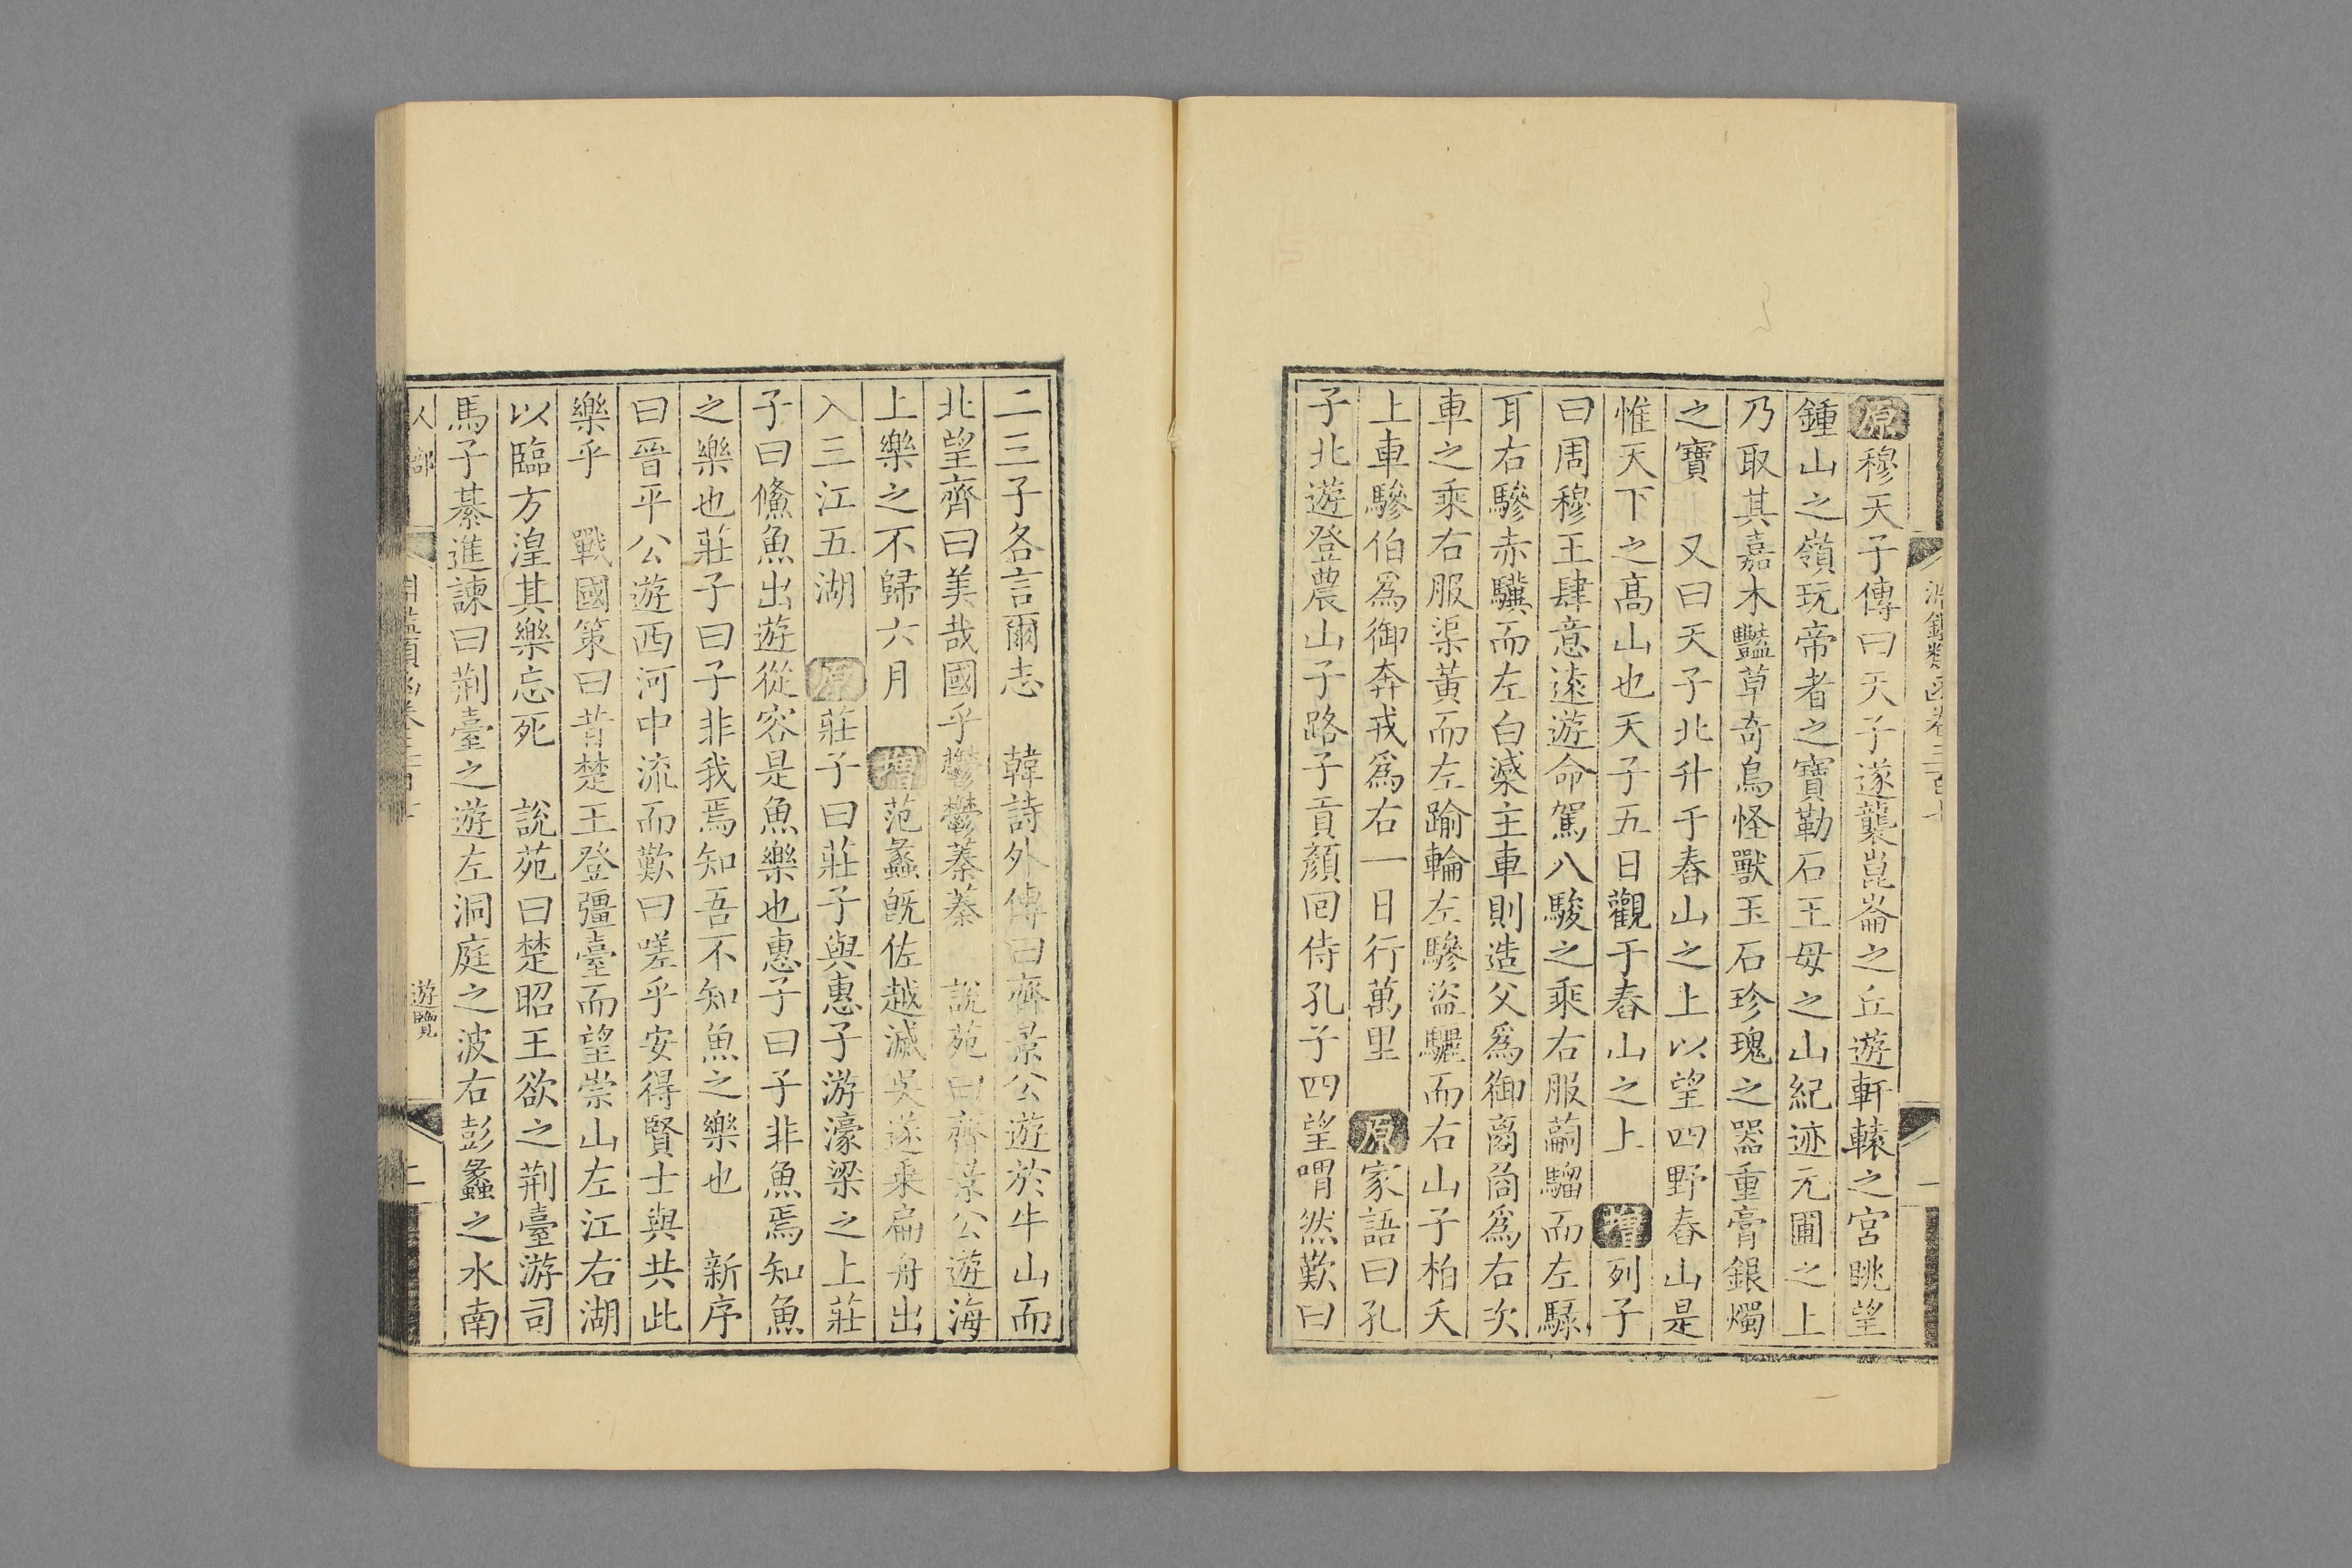 原穆天子傳曰天子遂襲崑崙之丘遊軒轅之宮眺望
鍾山之嶺玩帝者之寶勒石王母之山紀迹元圃之上
乃取其嘉木豔草奇鳥怪獸玉石珍瑰之器重膏銀燭
之寶 又曰天子北升于舂山之上以望四野舂山是
惟天下之高山也天子五日觀于舂山之上 增列子
曰周穆王肆意遠遊命駕八駿之乘右服驊騮而左騄
耳右驂赤驥而左白𣻳主車則造父爲御𦮼𠳮爲右次
車之乘右服渠黃而左踰輪左驂盜驪而右山子柏夭
上車驂伯爲御奔戎爲右一日行萬里 原家語曰孔
子北遊登農山子路子貢顏回侍孔子四望喟然歎曰
二三子各言爾志 韓詩外傳曰齊景公遊於牛山而
北望齊曰美哉國乎鬱鬱蓁蓁 說苑曰齊景公遊海
上樂之不歸六月 增范蠡既佐越滅吳遂乘扁舟出
入三江五湖 原莊子曰莊子與惠子游濠梁之上莊
子曰鯈魚出遊從容是魚樂也惠子曰子非魚焉知魚
之樂也莊子曰子非我焉知吾不知魚之樂也 新序
曰晉平公遊西河中流而歎曰嗟乎安得賢士與共此
樂乎 戰國策曰昔楚王登彊臺而望崇山左江右湖
以臨方湟其樂忘死 說苑曰楚昭王欲之荆臺游司
馬子綦進諫曰荆臺之遊左洞庭之波右彭蠡之水南
人部 遊覽 二